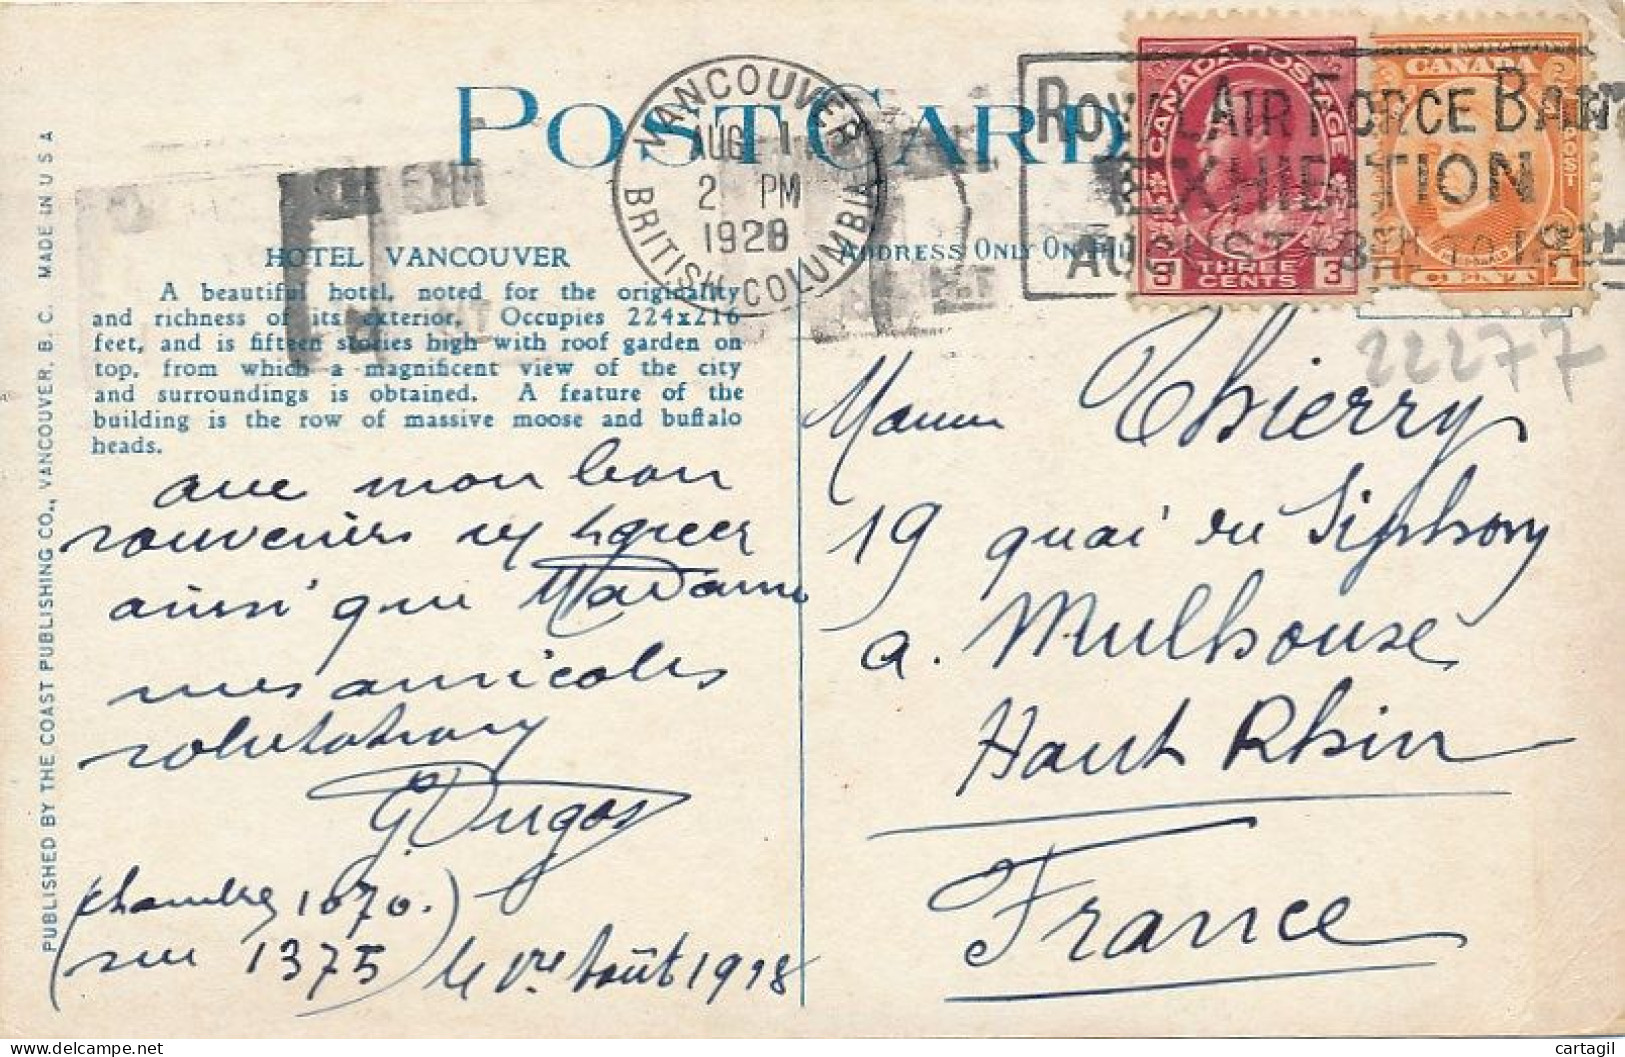 POST CARD
VANCOUVER
AUG 1
2 PM
1928
BRITISH COLUMBIA
ROYAL AIR FORCE BAN
EXHIBITION
AUGUST 8TH TO
CANADA POSTAGE
3 THREE CENTS 3
CANADA
1
HOTEL VANCOUVER
ADDRESS ONLY ON
A beautiful hotel, noted for the originality
and richness of its exterior. Occupies 224x216
feet, and is fifteen stories high with roof garden on
top, from which a magnificent view of the city
and surroundings is obtained. A feature of the
building is the row of massive moose and buffalo
heads.
PUBLISHED BY THE COAST PUBLISHING CO., VANCOUVER, B. C. MADE IN U S A
22277
avec mon bon
souvenirs
ainsi que Madame
mes amicales
salutations
G. Dugos
(chambre 1070.)
sur 1375
le 1re Août 1928
Thierry
19 quai du
a. Mulhouse
Haut Rhin
France
cartagil